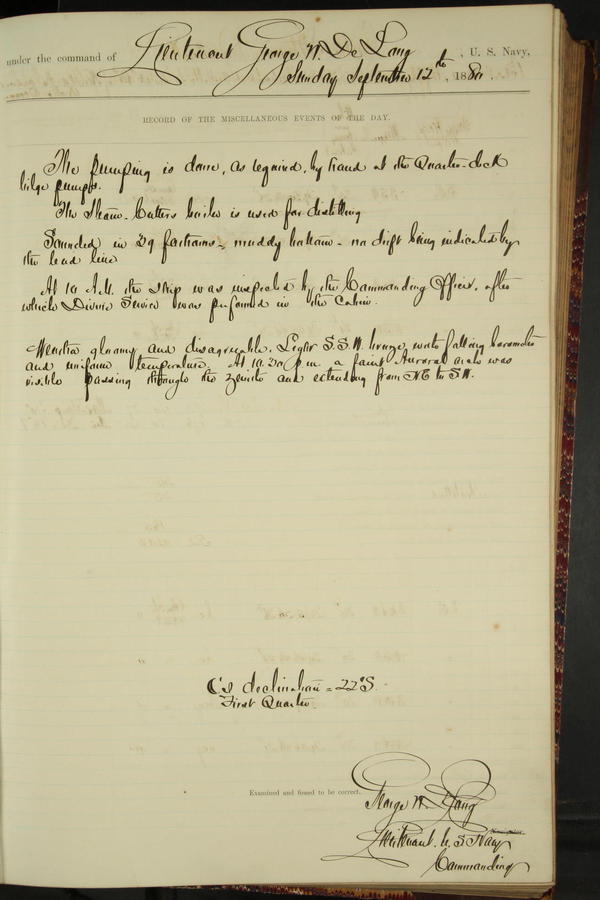 under the command of Lieutenant George W. De Long, U. S. Navy,
Sunday September 12th, 1880.
RECORD OF THE MISCELLANEOUS EVENTS OF THE DAY.
The pumping is done, as required, by hand at the Quarter-deck
bilge pumps.
The Steam-Cutters boiler is used for distilling
Sounded in 29 fathoms - muddy bottom - no drift being indicated by
the lead line
At 10 A.M. the ship was inspected by the Commanding Officer, after
which Divine Service was performed in the Cabin.
Weather gloomy and disagreeable. Light S.S.W. breeze, with falling barometer
and uniform temperature. At 10.30 p.m. a faint Auroral arch was
visible passing through the zenith and extending from NE to SW.
☾'s declination = 22°S.
First Quarter.
Examined and found to be correct.
George W. De Long
Lieutenant. U.S Navy
Commanding